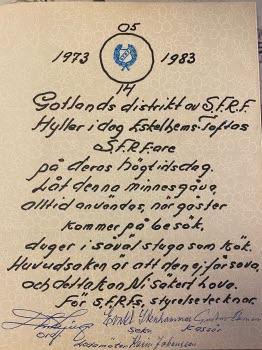 05
1973 1983
14
Gotlands distrikt av S.F.R.F.
Hyllar i dag Eskelhems-Toftas
S.F.R.F:are
på deras högtidsdag.
Låt denna minnesgåva,
alltid användas, när gäster
kommer på besök,
duger i såväl stuga som kök.
Huvudsaken är att den ej får sova,
och detta kan Ni säkert lova.
För S.F.R.F:s, styrelse tecknar.
Ordf.
Sekr. Kassör
Karin Johansson